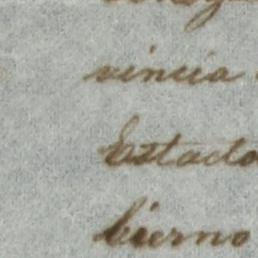 vincia
Estado
bierno